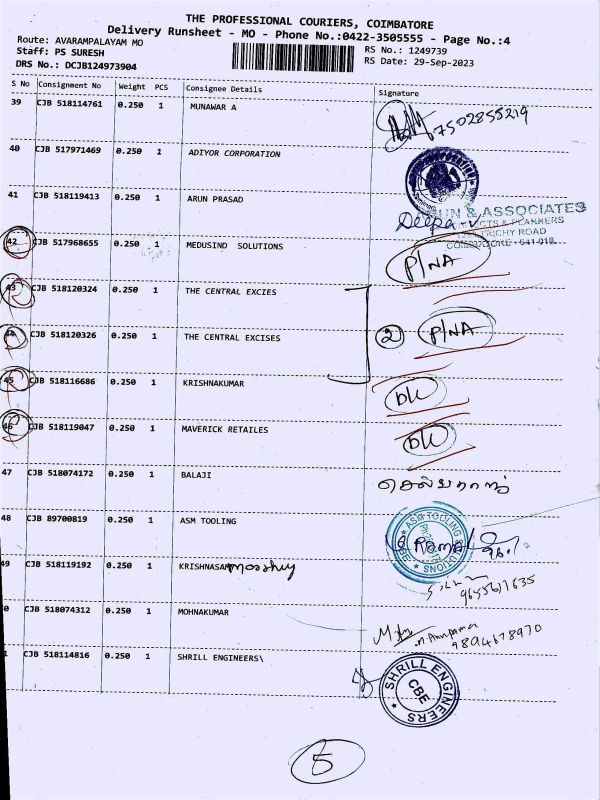 THE PROFESSIONAL COURIERS, COIMBATORE
Delivery Runsheet - MO - Phone No.:0422-3505555 - Page No.:4
Route: AVARAMPALAYAM MO
RS No.: 1249739
Staff: PS SURESH
RS Date: 29-Sep-2023
DRS No.: DCJB124973904
S No Consignment No Weight PCS Consignee Details Signature
39 CJB 518114761 0.250 1 MUNAWAR A 7502855219
40 CJB 517971469 0.250 1 ADIYOR CORPORATION
41 CJB 518119413 0.250 1 ARUN PRASAD Deepa.V
& ASSOCIATES
TRICHY ROAD
42 CJB 517968655 0.250 1 MEDUSIND SOLUTIONS P/NA
43 CJB 518120324 0.250 1 THE CENTRAL EXCIES
44 CJB 518120326 0.250 1 THE CENTRAL EXCISES 2 P/NA
45 CJB 518116686 0.250 1 KRISHNAKUMAR DL
46 CJB 518119047 0.250 1 MAVERICK RETAILES DL
47 CJB 518074172 0.250 1 BALAJI
48 CJB 89700819 0.250 1 ASM TOOLING ASM TOOLING
49 CJB 518119192 0.250 1 KRISHNASAMoorthy
9655611635
0 CJB 518074312 0.250 1 MOHNAKUMAR
9894678970
CJB 518114816 0.250 1 SHRILL ENGINEERS\ SHRILL ENGINEERS CBE
5